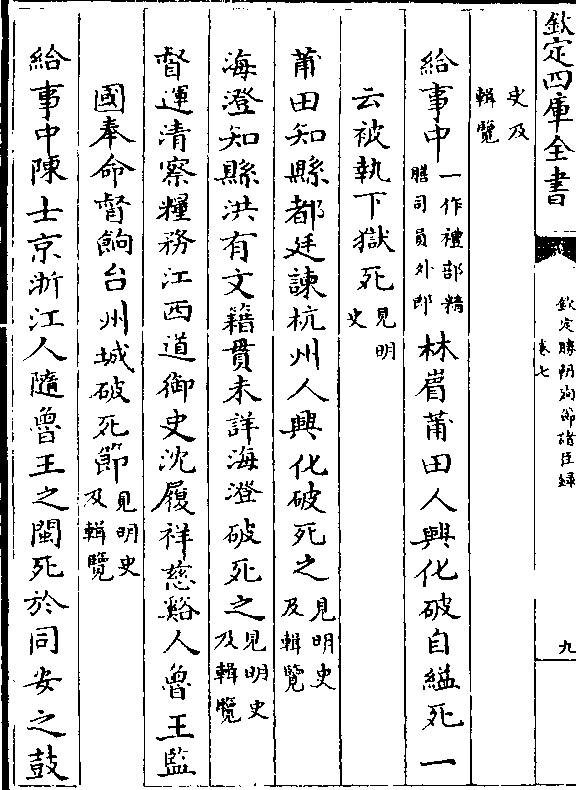 欽定四庫全書
欽定勝朝殉節諸臣錄
卷七
九
史及
輯覽
給事中
一作禮部精
膳司員外郎
林嵋莆田人興化破自縊死一
云被執下獄死
見明
史
莆田知縣都廷諫杭州人興化破死之
見明史
及輯覽
海澄知縣洪有文籍貫未詳海澄破死之
見明史
及輯覽
督運清察糧務江西道御史沈履祥慈谿人魯王監
國奉命督餉台州城破死節
見明史
及輯覽
給事中陳士京浙江人隨魯王之閩死於同安之鼓